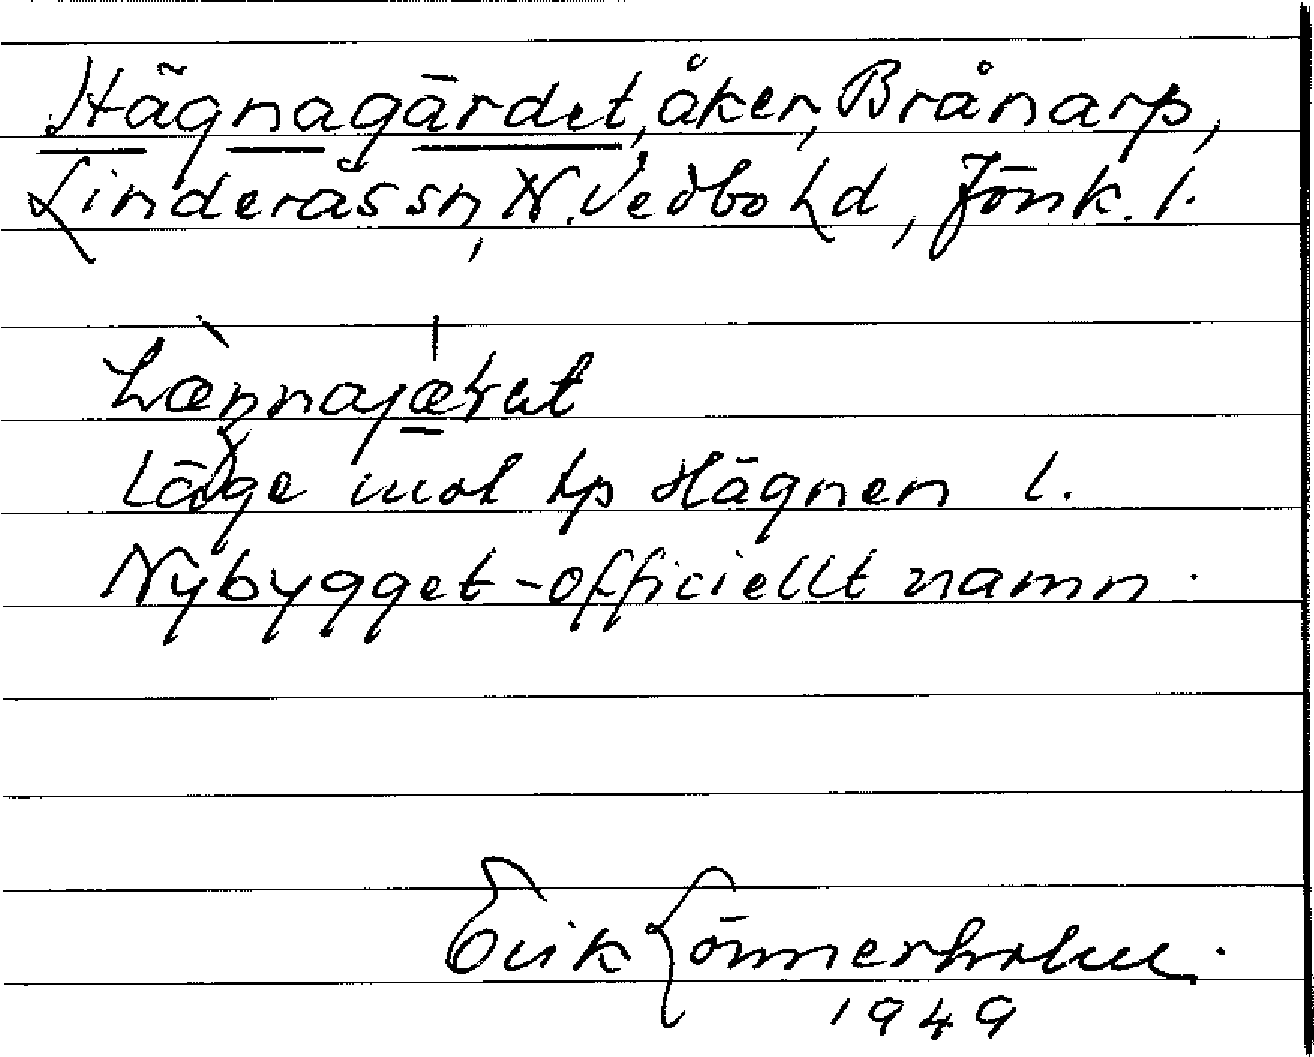 Hägnagärdet, åker, Brånarp,
Linderås sn, N. Vedbo hd, Jönk. l.
hænnajæret
Läge mot tp Hägnen 1.
Nybygget - officiellt namn.
Erik Lönnerholm.
1949